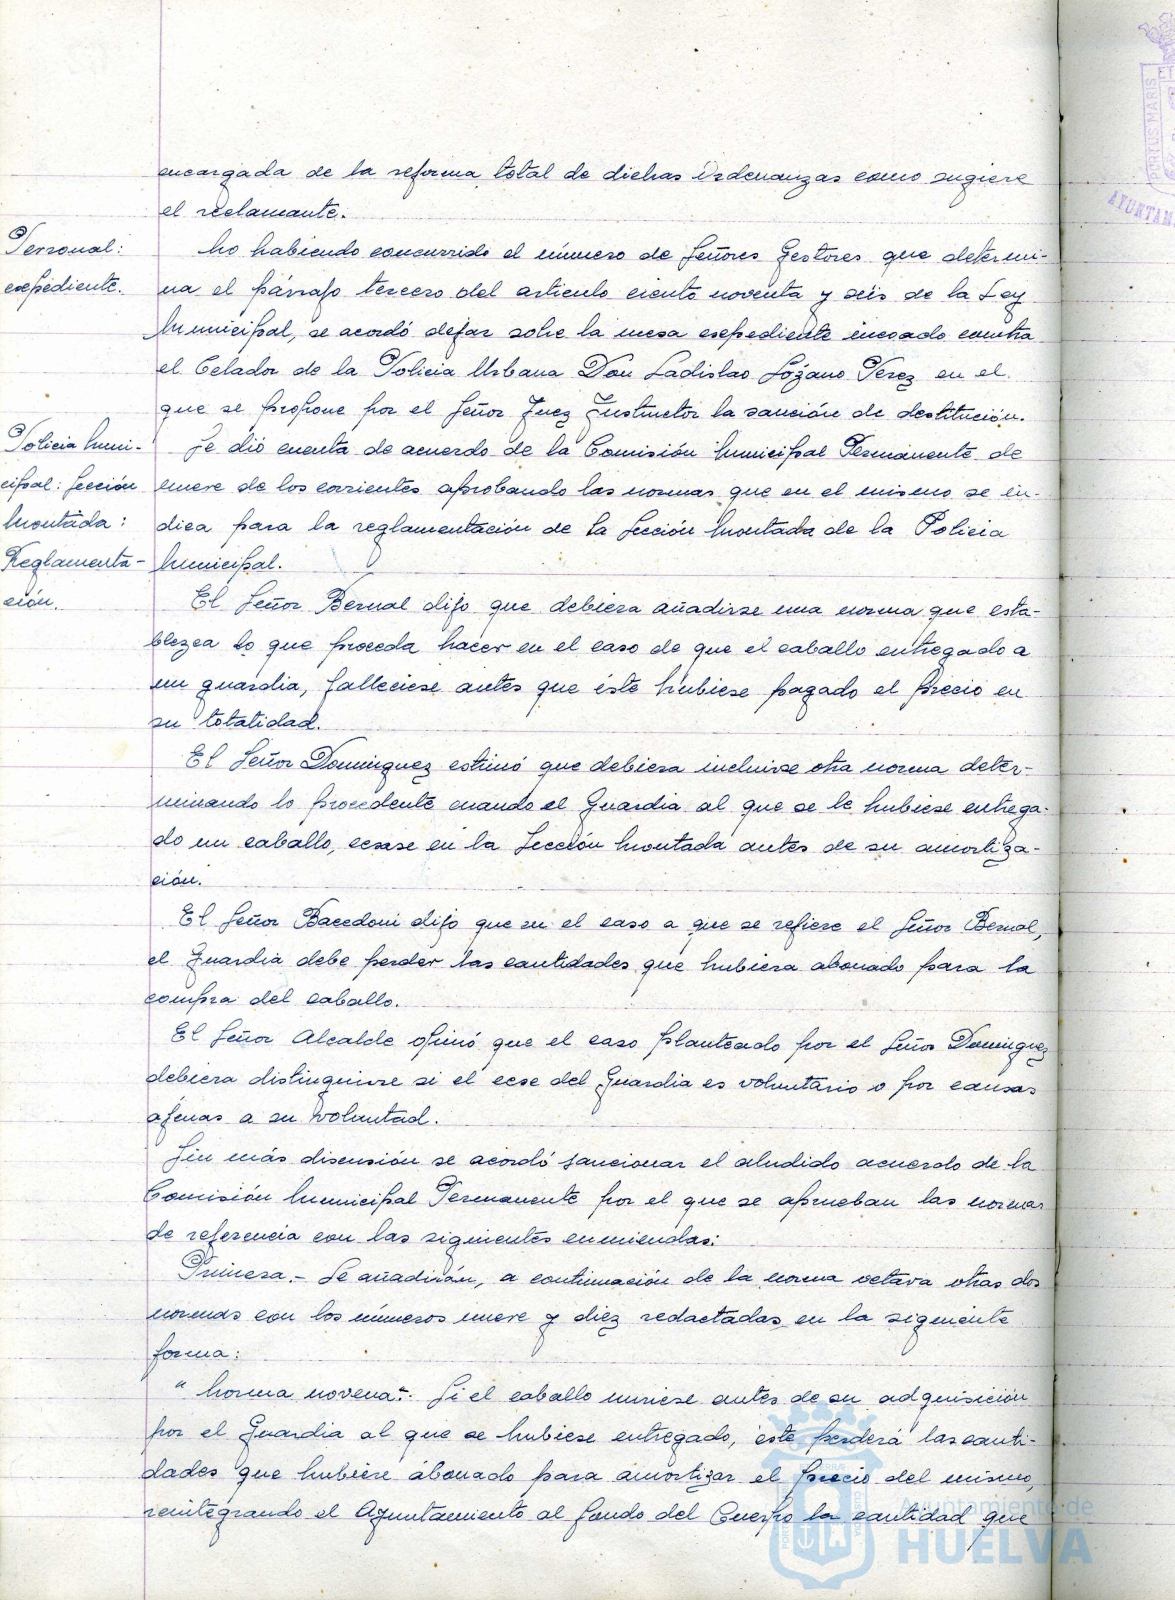 encargada de la reforma total de dichas Ordenanzas como sugiere
el reclamante.
Personal:
expediente.
No habiendo concurrido el número de Señores Gestores que determi-
na el párrafo tercero del articulo ciento noventa y seis de la Ley
Municipal, se acordó dejar sobre la mesa expediente incoado contra
el Celador de la Policia Urbana Don Ladislao Lozano Perez en el
que se propone por el Señor Juez Instructor la sanción de destitución.
Policia Muni-
cipal: Sección
Montada:
Reglamenta-
ción.
Se dió cuenta de acuerdo de la Comisión Municipal Permanente de
nueve de los corrientes aprobando las normas que en el mismo se in-
dica para la reglamentación de la Sección Montada de la Policia
Municipal.
El Señor Bernal dijo que debiera añadirse una norma que esta-
blezca lo que proceda hacer en el caso de que el caballo entregado a
un guardia, falleciese antes que éste hubiese pagado el precio en
su totalidad.
El Señor Dominguez estimó que debiera incluirse otra norma deter-
minando lo procedente cuando el Guardia al que se le hubiese entrega-
do un caballo, cesase en la Sección Montada antes de su amortiza-
ción.
El Señor Bacedoni dijo que en el caso a que se refiere el Señor Bernal,
el Guardia debe perder las cantidades que hubiera abonado para la
compra del caballo.
El Señor Alcalde opinó que el caso planteado por el Señor Dominguez
debiera distinguirse si el cese del Guardia es voluntario o por causas
ajenas a su voluntad.
Sin más discusión se acordó sancionar el aludido acuerdo de la
Comisión Municipal Permanente por el que se aprueban las normas
de referencia con las siguientes enmiendas:
Primera.- Se añadirán, a continuación de la norma octava otras dos
normas con los números nueve y diez redactadas en la siguiente
forma:
"Norma novena".- Si el caballo muriese antes de su adquisición
por el Guardia al que se hubiese entregado, éste perderá las canti-
dades que hubiere abonado para amortizar el precio del mismo,
reintegrando el Ayuntamiento al fondo del Cuerpo la cantidad que
Ayuntamiento de
HUELVA